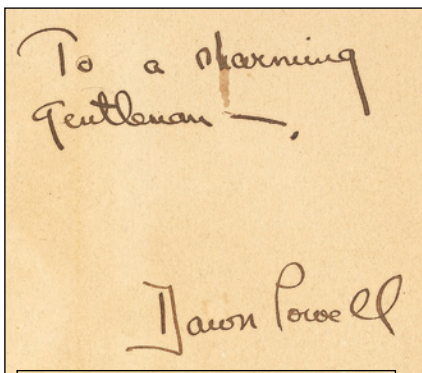 To a charming
gentleman —.
Dawn Powell